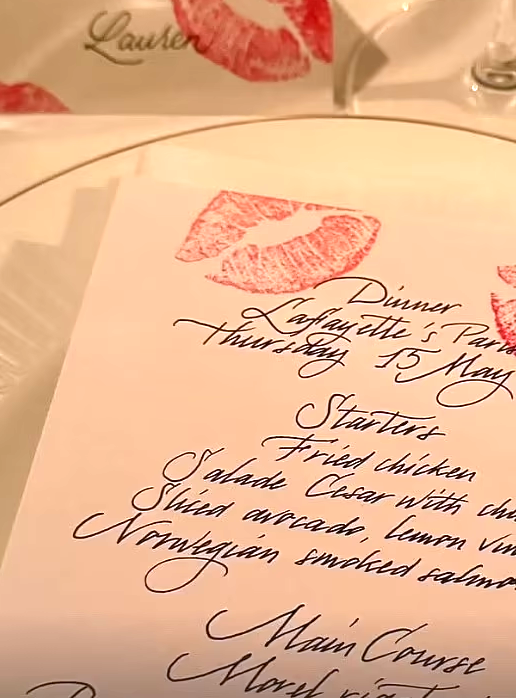 Lauren
Dinner
Lafayette's Paris
Thursday 15 May
Starters
Fried chicken
Salade César with
Sliced avocado, lemon
Norwegian smoked
Main Course
Morel